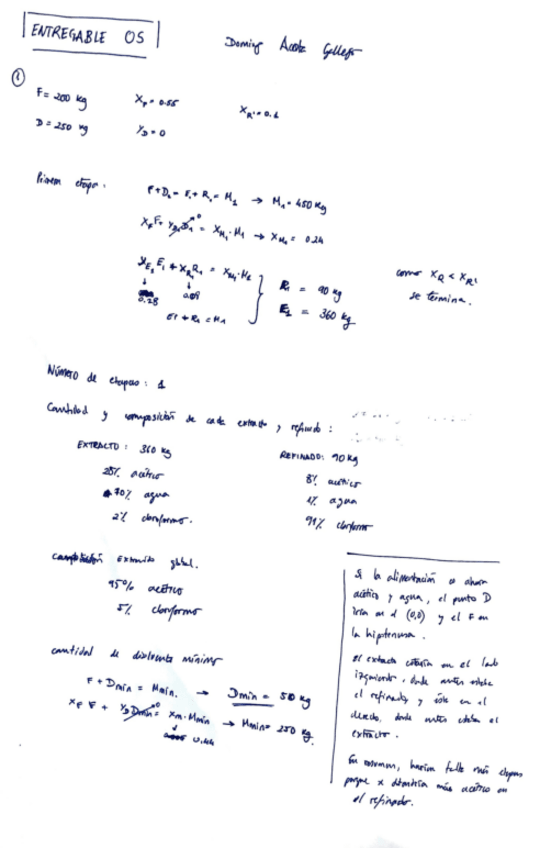 ENTREGABLE 05
①
F = 200 kg    X_F = 0.55    X_R' = 0.1
D = 250 kg    Y_D = 0
Primera etapa.
F + D_1 = E_1 + R_1 = M_1 → M_1 = 450 kg
X_F F + Y_D D_1 = X_M1 · M_1 → X_M1 = 0.24
Y_E1 E_1 + X_R1 R_1 = X_M1 · M_1
0.28    0.08
E_1 + R_1 = M_1
R_1 = 90 kg
E_1 = 360 kg
como X_R < X_R'
se termina.
Número de etapas: 1
Cantidad y composición de cada extracto y refinado:
EXTRACTO: 360 kg    REFINADO: 90 kg
28% acético    8% acético
70% agua    1% agua
2% cloroformo.    91% cloroformo
composición extraído global.
95% acético
5% cloroformo
cantidad de disolvente mínimo
F + Dmín = Mmín. → Dmín = 50 kg
X_F F + Y_D Dmín = X_m · Mmín → Mmín = 250 kg.
0.44
Si la alimentación es ahora
acético y agua, el punto D
iría en el (0,0) y el F en
la hipotenusa.
El extracto estaría en el lado
izquierdo, donde antes estaba
el refinado, y éste en el
derecho, donde antes estaba el
extracto.
En resumen, harían falta más etapas
porque x más acético en
el refinado.